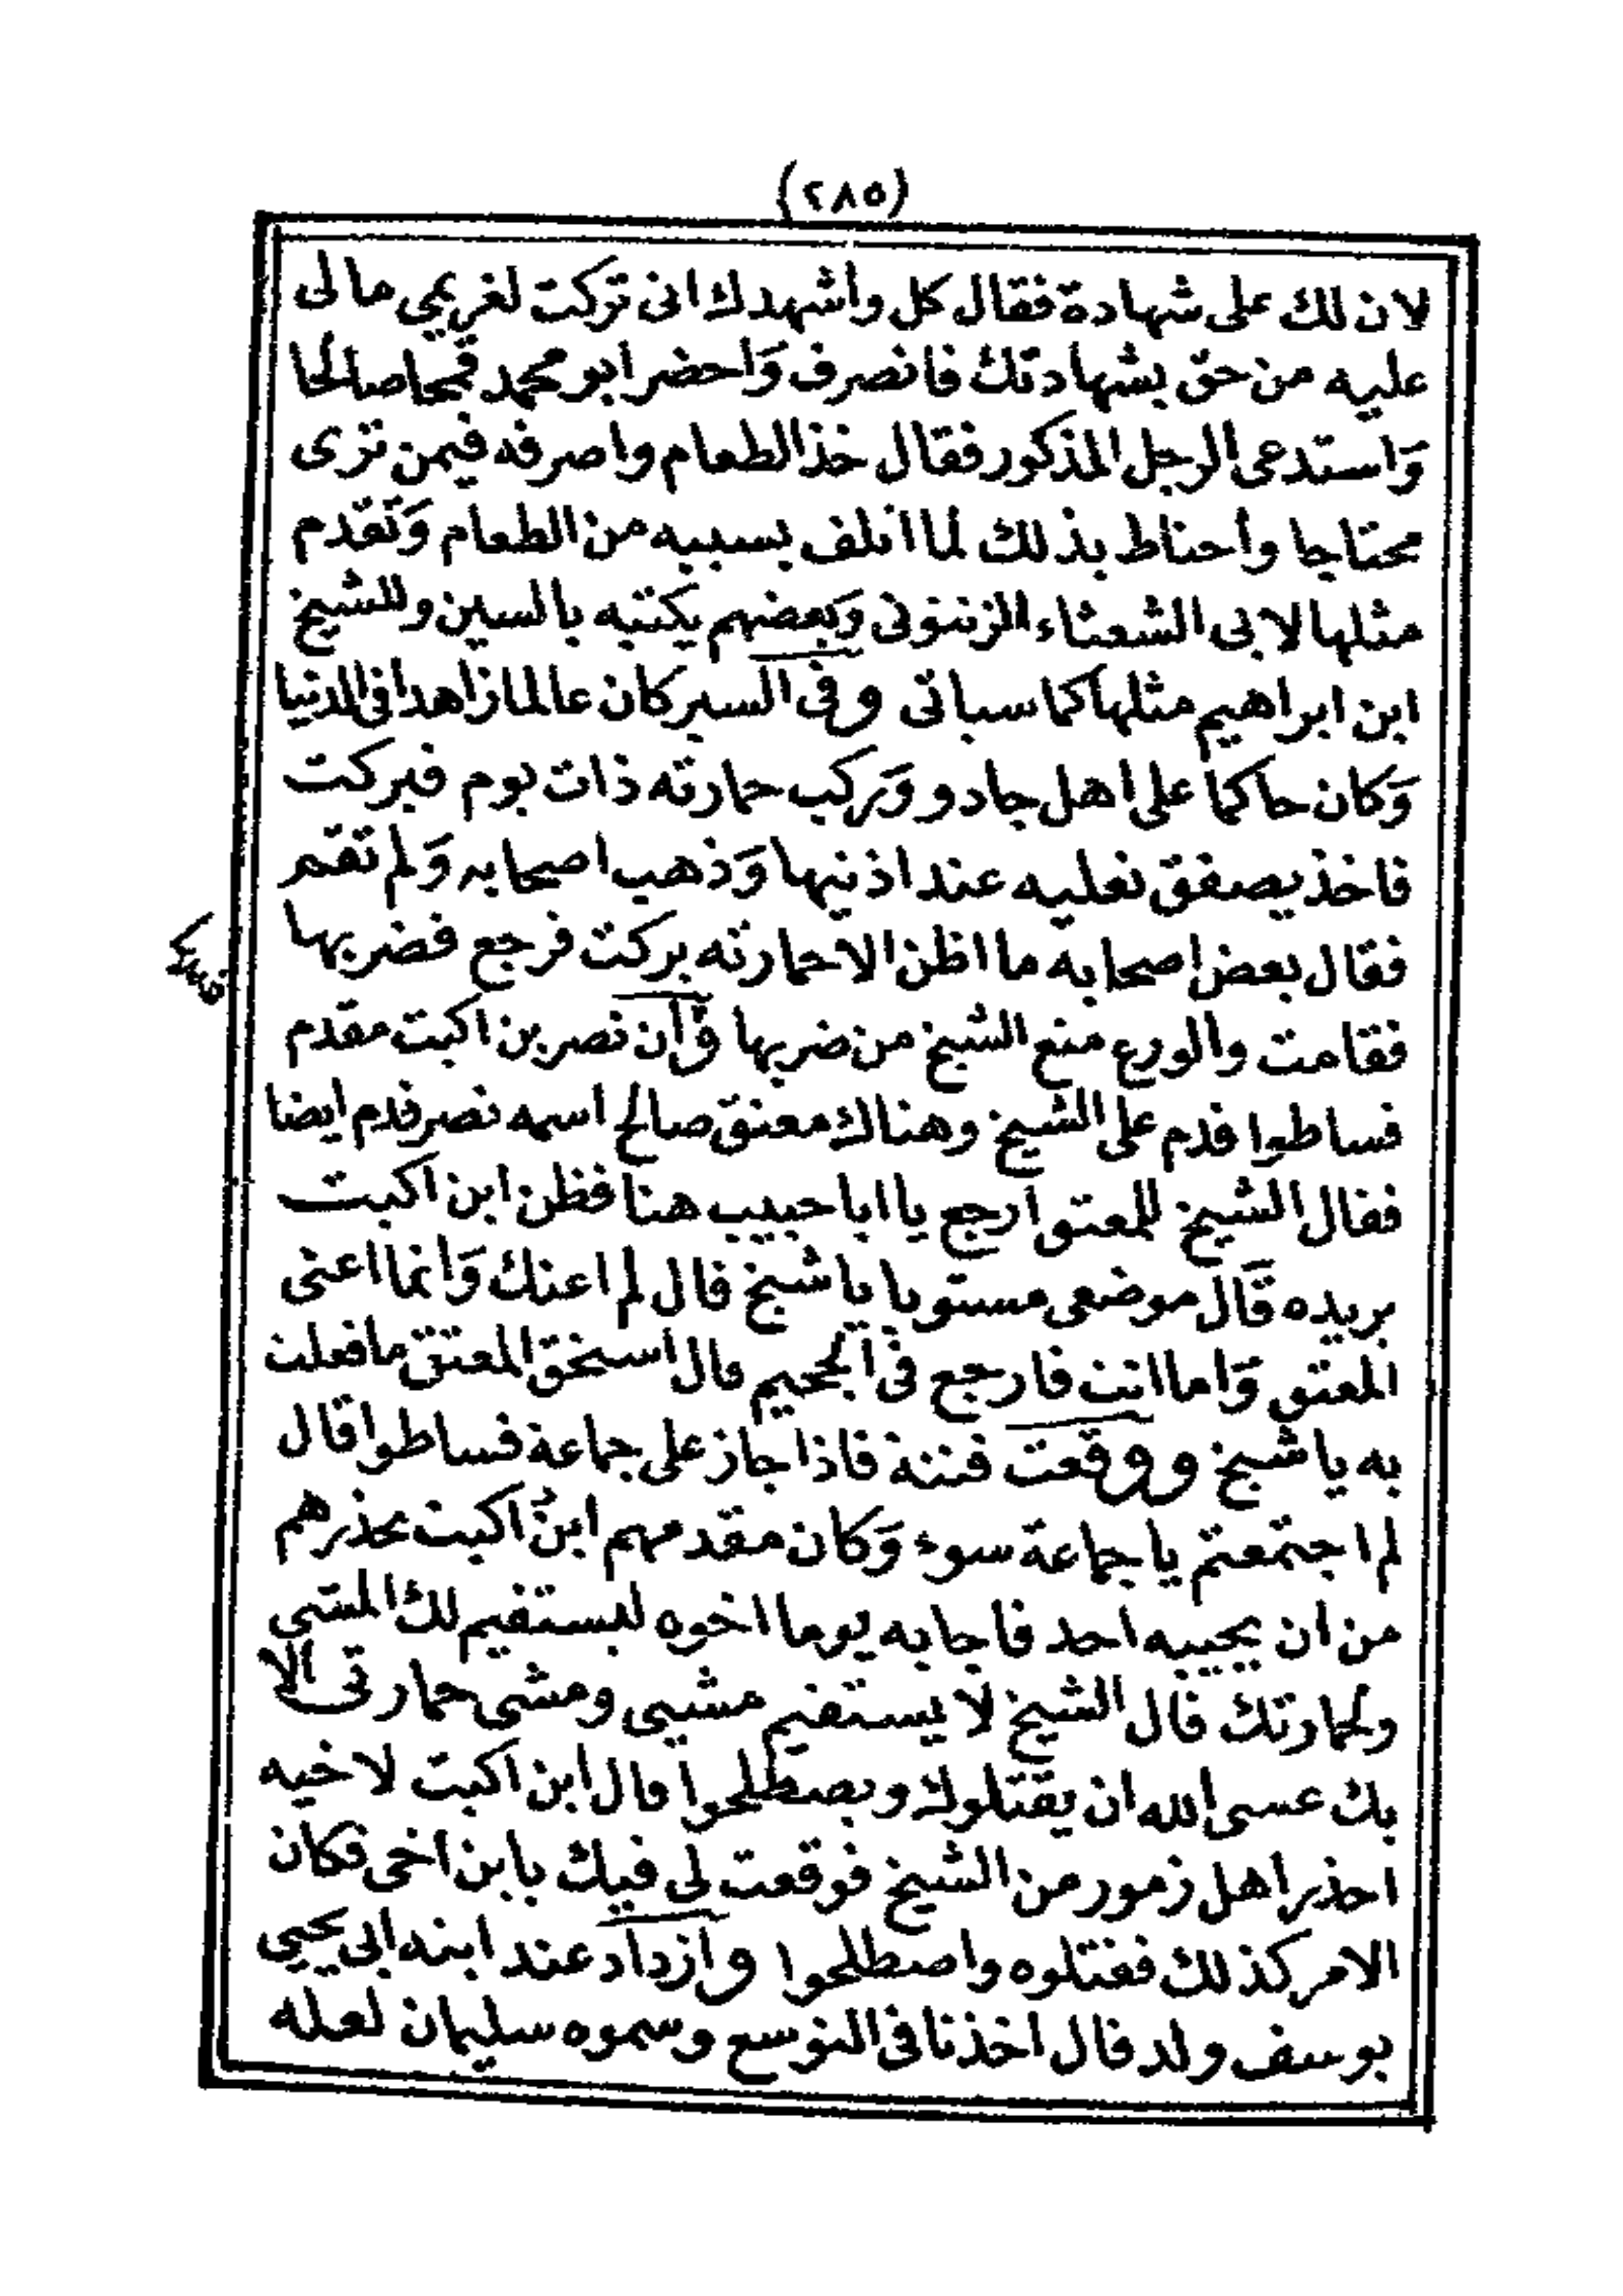 (٢٨٥)
لان لك على شهادة فقال كل واشهدك انى تركت لغريمى مالى
عليه من حق بشهادتك فانصرف وَاحضر ابو محمد قمحا صالحا
وَاستدعى الرجل المذكور فقال خذ الطعام واصرفه فيمن ترى
محتاجا وأحتاط بذلك لما اتلف بسببه من الطعام وَتقدم
مثلها لابى الشعثاء الزنتونى وَبعضهم يكتبه بالسين وللشيخ
ابن ابراهيم مثلها كما سياتى وفى السير كان عالما زاهدا فى الدنيا
وَكان حاكما على اهل جادو وَركب حمارته ذات يوم فبركت
فاخذ يصفق نعليه عند اذنيها وَذهب اصحابه وَلم تقم
فقال بعض اصحابه ما اظن الا حمارته بركت فرجع فضربها
فقامت والورع منع الشيخ من ضربها وأن نصر بن اكيت مقدم
فساطوا قدم على الشيخ وهناك معتق صالح اسمه نصر قدم ايضا
فقال الشيخ للمعتق ارجع يا ابا حبيب هنا فظن ابن اكيت
يريده قَال موضعى مستو يا يا شيخ قال لم اعنك وَانما اعنى
المعتق وَاما انت فارجع فى الجحيم قال استحق المعتق ما فعلت
به يا شيخ ووقعت فتنة فاذا جاز على جماعة فساطوا قال
لم اجتمعتم يا جماعة سوء وَكان مقدمهم ابن اكيت يحذرهم
من ان يجيبه احد فاجابه يوما اخوه ليستقيم لك المشى
ولحمارتك قال الشيخ لا يستقيم مشيى ومشى حمارتى الا
بك عسى الله ان يقتلوك ويصطلحوا قال ابن اكيت لاخيه
احذر اهل زمور من الشيخ فوقعت لى فيك يا بن اخى فكان
الامر كذلك فقتلوه واصطلحوا وازداد عند ابنه ابى يحيى
يوسف ولد قال اخذنا فى التوسع وسموه سليمان لعله